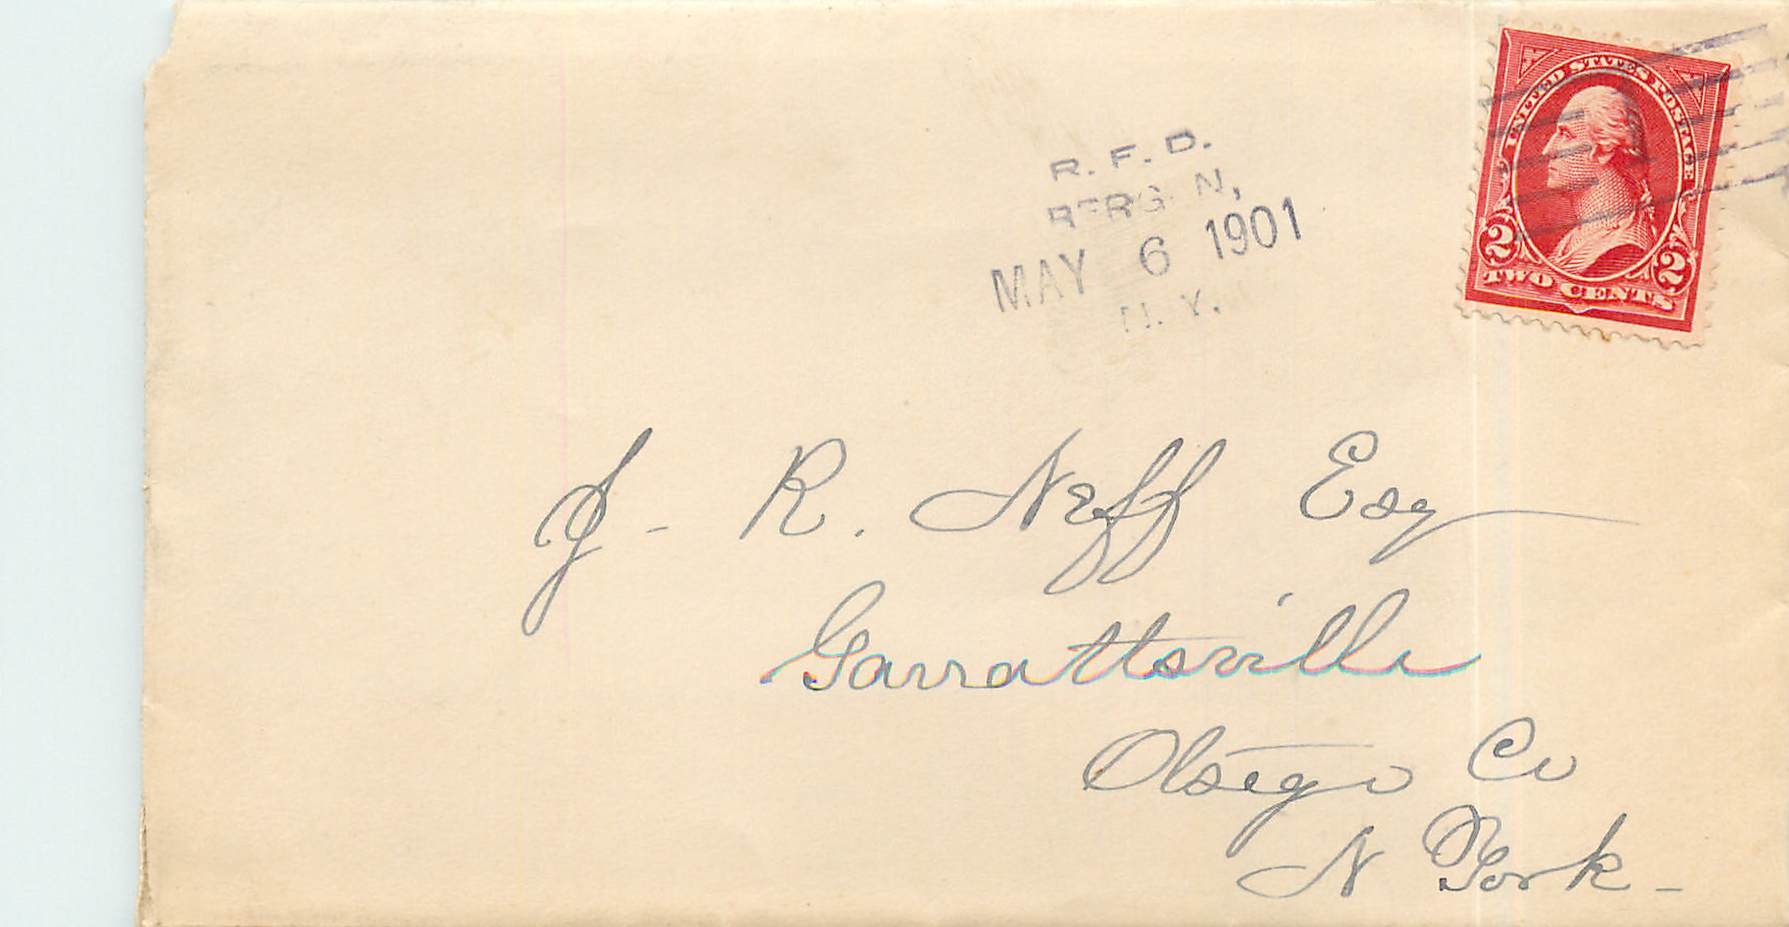 R. F. D.
BERGEN,
MAY 6 1901
N. Y.
UNITED STATES POSTAGE
2 2
TWO CENTS
J- R. Neff Esq
Garrattsville
Otsego Co
N York-